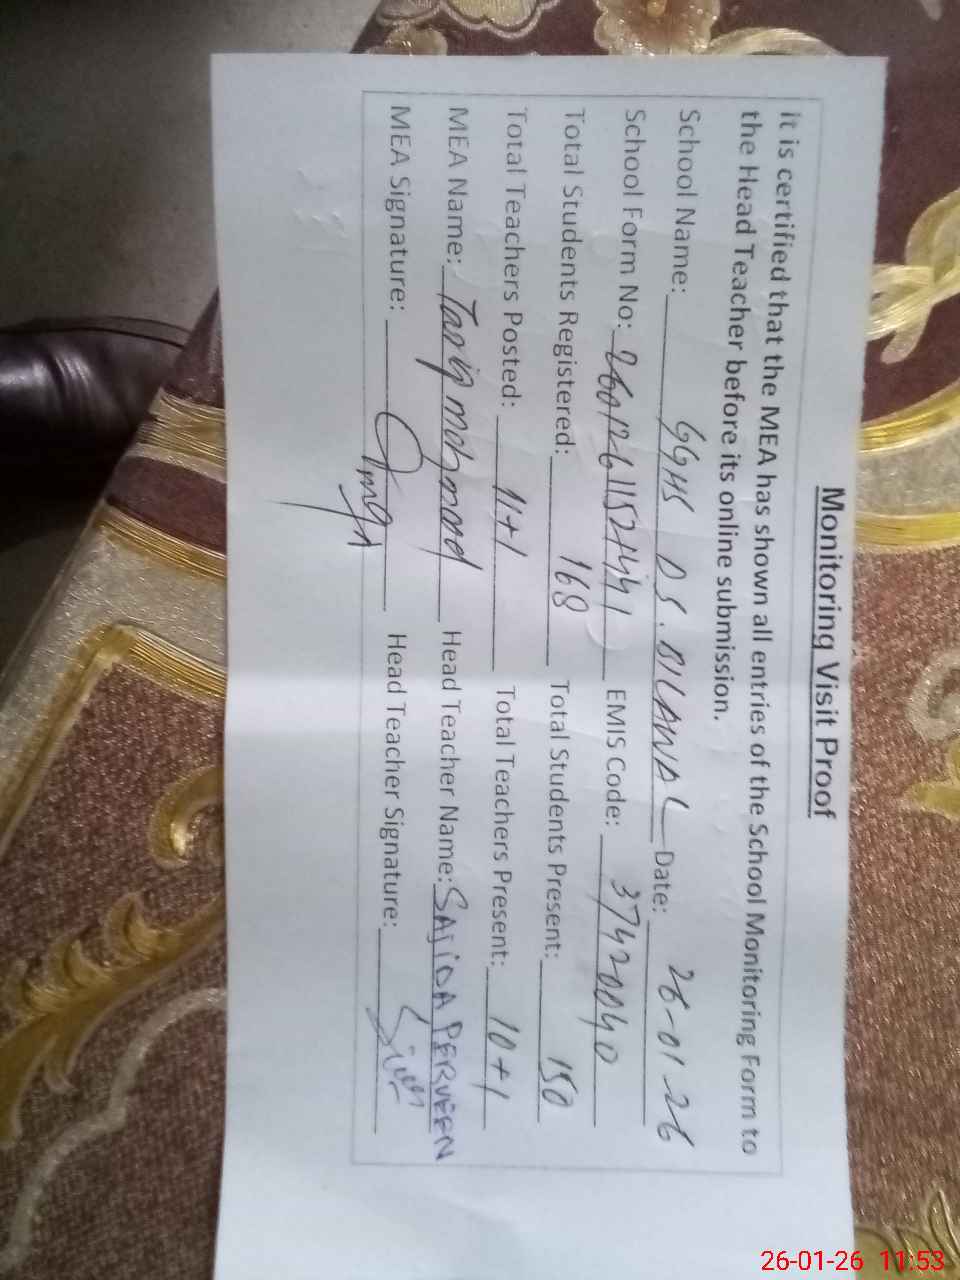 Monitoring Visit Proof
it is certified that the MEA has shown all entries of the School Monitoring Form to
the Head Teacher before its online submission.
School Name: GGHS D.S. BILAWAL Date: 26-01-26
School Form No: EMIS Code: 37420040
Total Students Registered: 168 Total Students Present: 150
Total Teachers Posted: 11+1 Total Teachers Present: 10+1
MEA Name: Tariq mahmood Head Teacher Name: SAJIDA PERVEEN
MEA Signature: Head Teacher Signature:
26-01-26 11:53